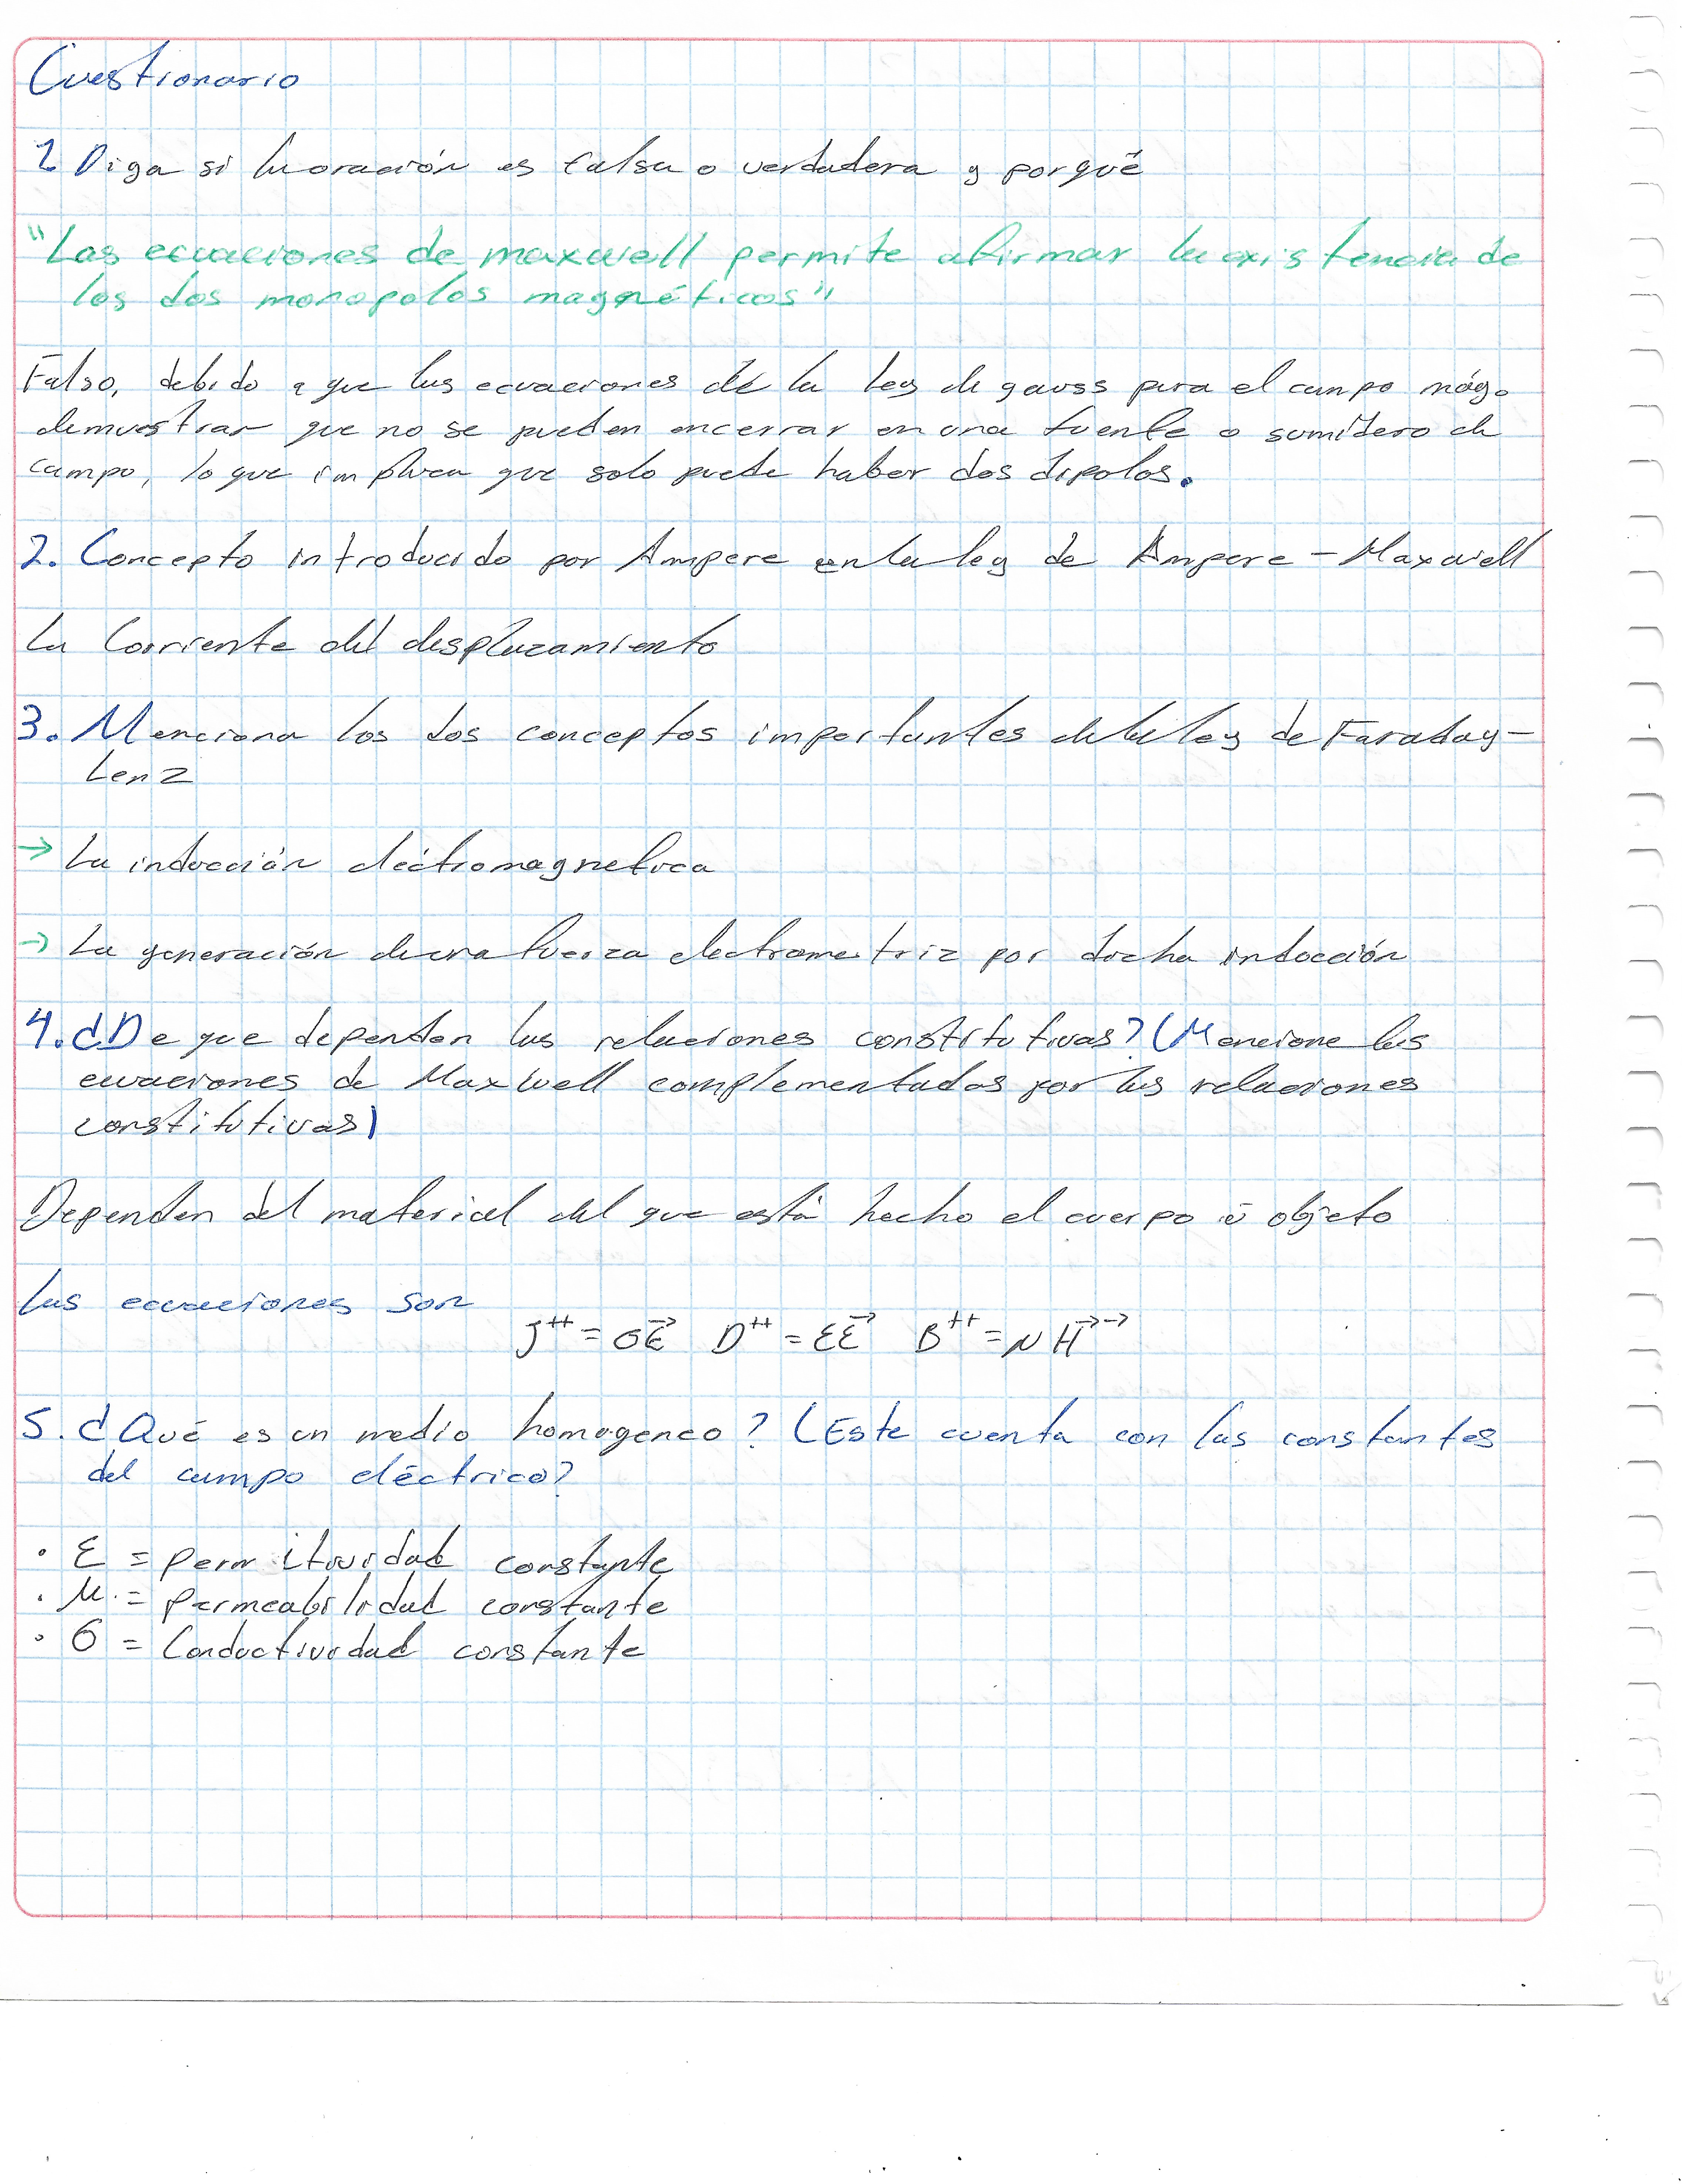 Cuestionario
1 Diga si la oración es falsa o verdadera y porqué
"Las ecuaciones de maxwell permite afirmar la existencia de
los dos monopolos magnéticos"
Falso, debido a que las ecuaciones de la ley de gauss para el campo mág.
demuestran que no se pueden encerrar en una fuente o sumidero de
campo, lo que implica que solo puede haber dos dipolos.
2. Concepto introducido por Ampere en la ley de Ampere - Maxwell
La Corriente del desplazamiento
3. Menciona los dos conceptos importantes de la ley de Faraday-
Lenz
→ La inducción eléctromagnetica
→ La generación de una fuerza electromotriz por dicha inducción
4. ¿De que dependen las relaciones constitutivas? (Mencione las
ecuaciones de Maxwell complementadas por las relaciones
constitutivas)
Dependen del material del que está hecho el cuerpo ó objeto
las ecuaciones son
J⁺⁺ = σE⃗ D⁺⁺ = εE⃗ B⁺⁺ = μ H→→
5. ¿Qué es un medio homogeneo? (Este cuenta con las constantes
del campo eléctrico?
· ε = permitividad constante
· μ = permeabilidad constante
· σ = Conductividad constante